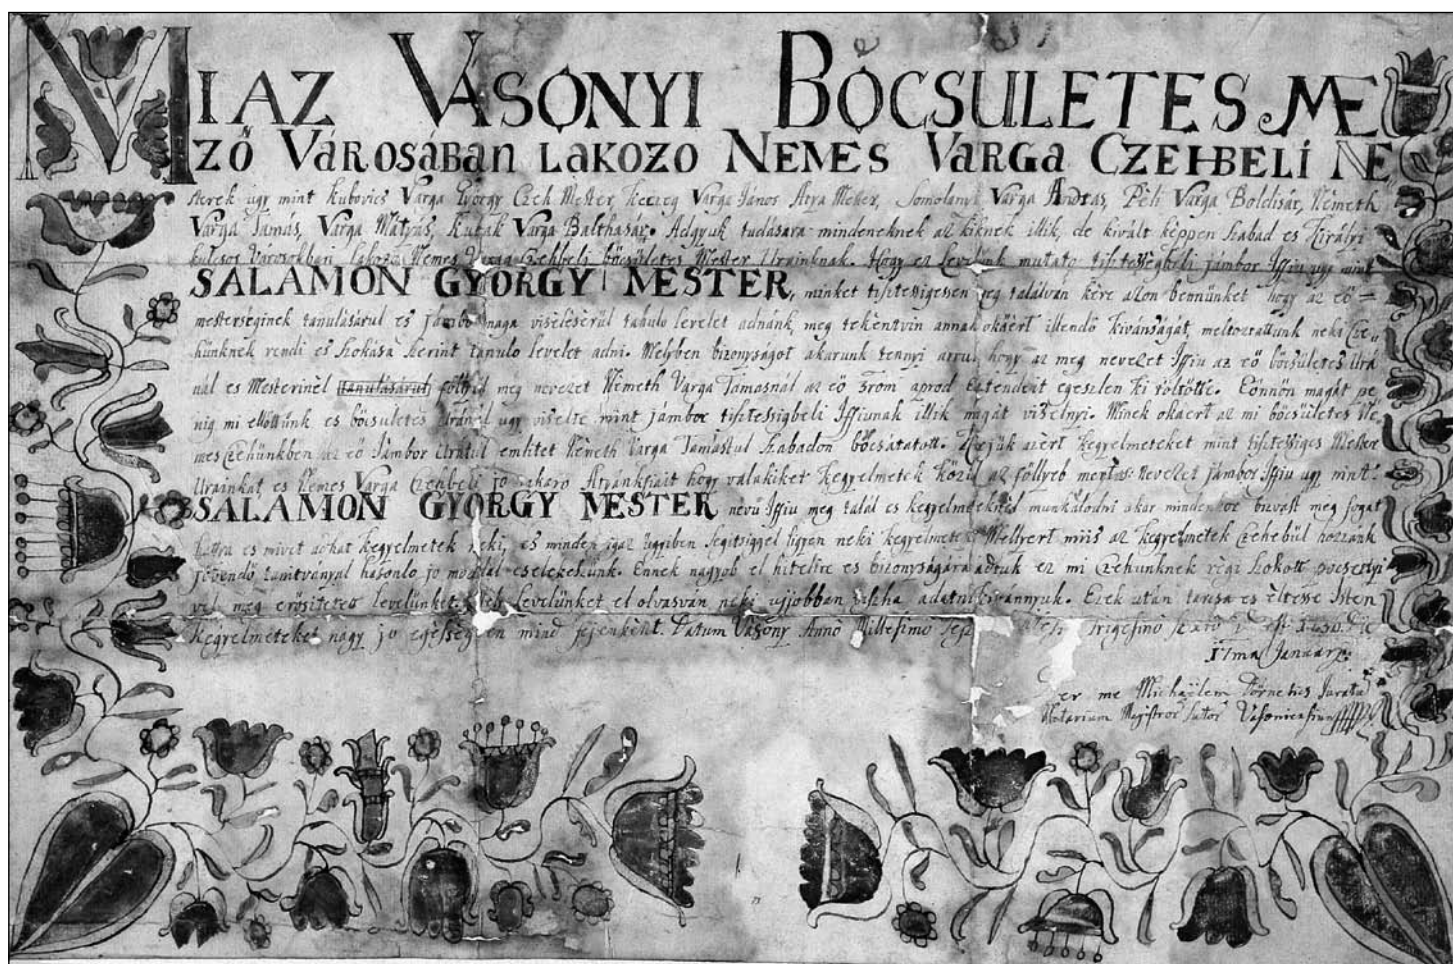 MI AZ VÁSONYI BÖCSULETES ME
ZŐ VÁROSÁBAN LAKOZO NEMES VARGA CZEHBELI NE
sterek ugy mint Kubovics Varga György Czeh Mester, Herczeg Varga János Atya Mester, Somolányi Varga András, Péli Varga Boldisár, Németh
Varga Tamás, Varga Mátyás, Kuták Varga Balthasár. Adgyuk tudására mindeneknek az kiknek illik, de kivált képpen Szabad es Királyi
kulcsos Városokban lakozo Nemes Varga Czehbeli böcsületes Mester Urainknak. Hogy ez levelünk mutato tisztességbeli jámbor Iffiu ugy mint
SALAMON GYÖRGY MESTER, minket tisztessigessen meg talalván kére azon bennünket hogy az eő
mesterséginek tanulásárul es jámbor maga viselésérül tanulo levelet adnánk, meg tekéntvin annak okáért illendő kivánságát, meltoztattunk neki Cze
hünknek rendi es szokása szerint tanulo levelet adni. Melyben bizonyságot akarunk tennyi arrul, hogy az meg nevezet Iffiu az eő böcsületes Urá
nál es Mesterinèl tanulásárul föllyül meg nevezet Németh Varga Tamasnál az eő három aprod esztendeit egeszlen ki töltötte. Eönnön magát pe
nig mi előttünk es böcsuletes Uránál ugy viselte mint jámbor tisztessigbeli Iffiunak illik magát viselnyi. Minek okáert az mi böcsületes Ne
mes Czehünkben az eő Jámbor Urátul emlitet Németh Varga Tamástul szabadon böcsátatott. Kérjük azért kegyelmeteket mint tisztessiges Mester
Urainkat es Nemes Varga Czehbeli jo akaro Atyánkfiait hogy valakiket kegyelmetek közül az föllyeb nevezet jámbor Iffiu ugy mint
SALAMON GYÖRGY MESTER nevű Iffiu meg talál es kegyelmeteknél munkálodni akar mindenkor bizvast meg fogat
hattya es mivel adhat kegyelmetek neki, es minden igaz ügyiben segitsiggel ligyen neki kegyelmetek Mellyert miis az kegyelmetek Czehebül hozzánk
jövendő tanitványal hasonlo jo moddal cselekeszünk. Ennek nagyob el hitelire es bizonyságára adtuk ez mi Czehunknek régi szokott pöcsetyi
vel meg erősitetet levelünket. levelünket el olvasván neki ujjobban viszha adatni kivannyuk. Ezek után tarcsa es éltesse Isten
Kegyelmeteket nagy jo egésségben mind fejenként. Datum Vásony Anno Millesimo trigesimo
17ma Januarij.
Per me Michaëlem Juratum
Notarium Magistror Sutor Vasoniensium